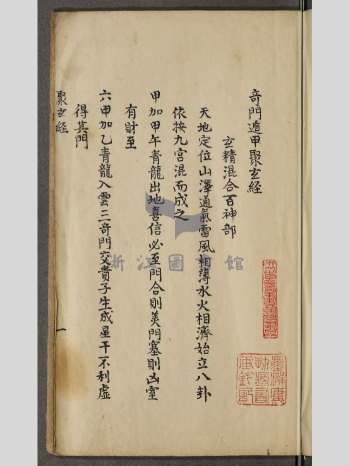 奇門遁甲聚玄經
玄精混合百神部
天地定位山澤通氣雷風相薄水火相濟始立八卦
依按九宮混而成之
甲加甲午青龍出地喜信必至門合則美門墓則凶室
有財至
六甲加乙青龍入雲三奇門交貴子生成星干不利虛
得其門
聚玄經
一
浙江圖書館